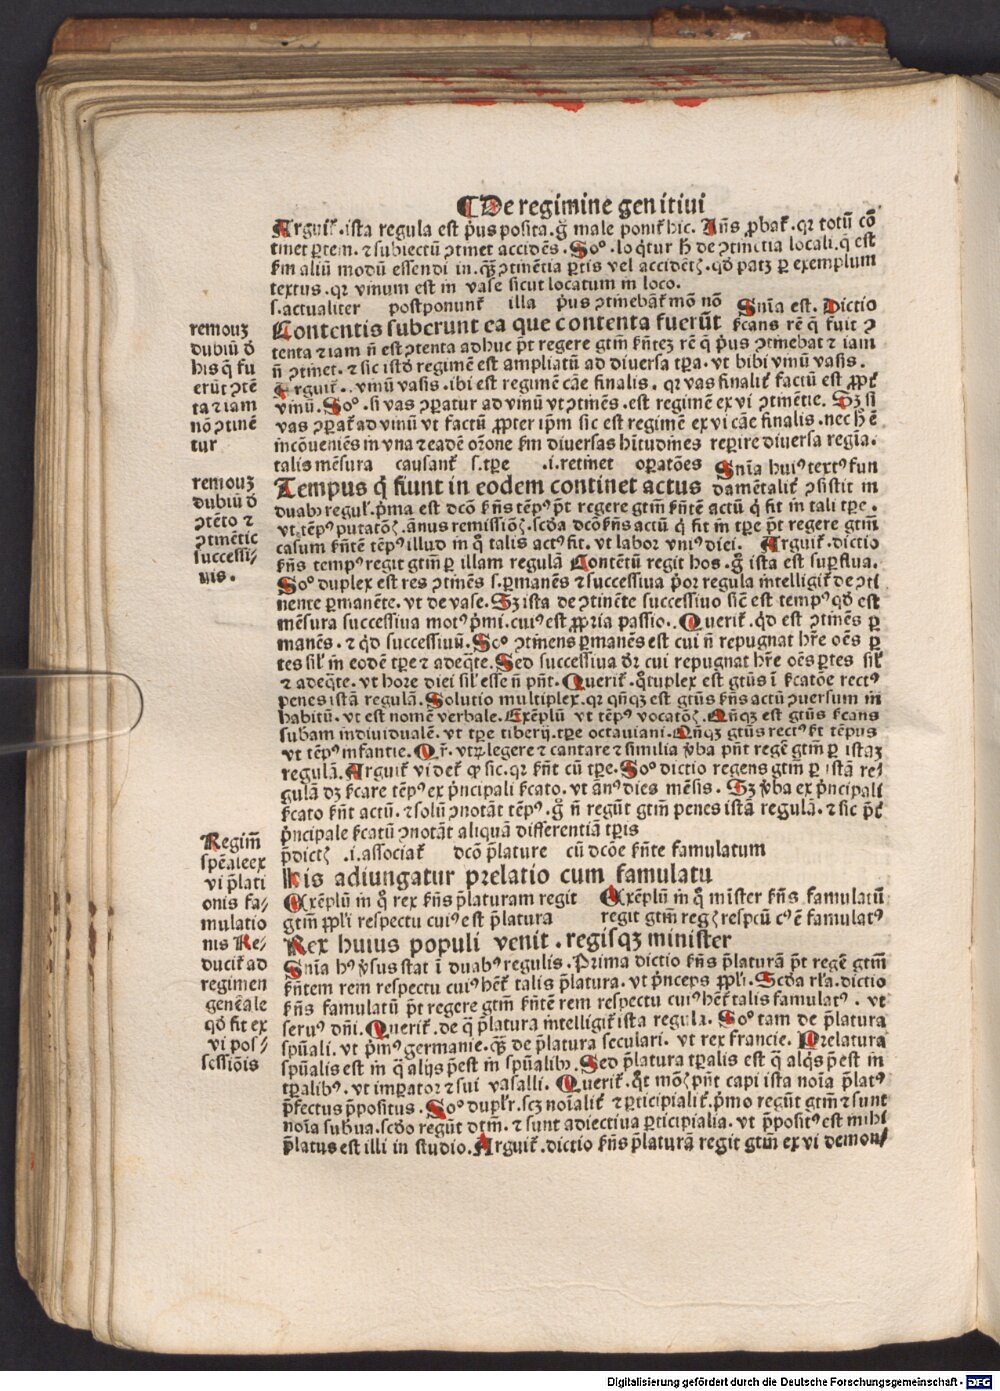 ¶De regimine genitiui
Arguit͛.ista regula est p̄us posita.g̊ male ponit͛ hic. Ans̄ ꝓbat͛.qꝛ totū cō
tinet ꝑtem.⁊ subiectū ꝯtinet accidēs. Soº.loqͥtur h̄ de ꝯtinētia locali.q̄ est
fm aliū modū essendi in.qꝫ̄ ꝯtinētia ꝑtis vel accidētꝭ.qd̓ patꝫ ꝑ exemplum
textus.qꝛ vinum est in vase sicut locatum in loco.
s.actualiter postponunt͛ illa p̄us ꝯtinebāt͛ mō nō
Contentis suberunt ea que contenta fuerūt
Sn̄ia est. Dictio
tenta ⁊ iam n̄ est ꝯtenta adhuc p̄t regere gtm̄ k̄nteꝫ rē q̄ p̄us ꝯtinebat ⁊ iam
n̄ ꝯtinet.⁊ sic istd̓ regimē est ampliatū ad diuersa tꝑa.vt bibi vinū vasis.
Arguit͛.vinū vasis.ibi est regimē cāe finalis.qꝛ vas finalit͛ factū est ꝓpt͛
vinū. Soº.si vas ꝯꝑatur ad vinū vt ꝯtinēs.est regimē ex vi ꝯtinētie. Sꝫ si
vas ꝯꝑat͛ ad vinū vt factū ꝓpter ip̄m sic est regimē ex vi cāe finalis.nec h̄ ē
incōueniēs in vna ⁊ eadē or̄one fm diuersas h̄itudines reꝑire diuersa regīa.
talis mēsura causant͛ s.tꝑe .i.retinet oꝑatōes
Tempus q̄ fiunt in eodem continet actus
Sn̄ia huiꝰ textꝰ fun
damētalit͛ ꝯsistit in
duabꝰ regul͛.p̄ma est dcō k̄ns tēpꝰ p̄t regere gtm̄ k̄ntē actū q̄ fit in tali tꝑe.
vt tēpꝰ putatōꝭ.ānus remissiōꝭ.scd̓a dcō k̄ns actū q̄ fit in tꝑe p̄t regere gtm̄
casum k̄ntē tēpꝰ illud in q̊ talis actꝰ fit.vt labor vniꝰ diei. Arguit͛.dictio
k̄ns tempꝰ regit gtm̄ ꝑ illam regulā Contētū regit hos.g̊ ista est suꝑflua.
Soº duplex est res ꝯtinēs s.ꝑmanēs ⁊ successiua p̄or regula intelligit͛ de ꝯti
nente ꝑmanēte.vt de vase. Sꝫ ista de ꝯtinēte successiuo sic̄ est tempꝰ qd̓ est
mēsura successiua motꝰ p̄mi.cuiꝰ est ꝓpria passio. Querit͛.qͥd est ꝯtinēs ꝑ
manēs.⁊ qͥd successiuū. Soº ꝯtinens ꝑmanēs est cui n̄ repugnat h̄re oēs ꝑ
tes sil͛ in eodē tꝑe ⁊ adeq̄te. Sed successiua dr̄ cui repugnat h̄re oēs ꝑtes sil͛
⁊ adeq̄te.vt hore diei sil͛ esse n̄ pn̄t. Querit͛.q̊tuplex est gtūs ī k̄catōe rectꝰ
penes istā regulā. Solutio multiplex.qꝛ qn̄qꝫ est gtūs k̄ns actū ꝯuersum in
habitū.vt est nomē verbale. Exēplū vt tēpꝰ vocatōꝭ. Qn̄qꝫ est gtūs k̄cans
subam indiuidualē.vt tꝑe tiberij.tꝑe octauiani. Qn̄qꝫ gtūs rectꝰ k̄t tēpus
vt tēpꝰ infantie. Qr̄.vtꝝ legere ⁊ cantare ⁊ similia v̓ba pn̄t regē gtm̄ ꝑ istaꝫ
regulā. Arguit͛ videt͛ ꝙ sic.qꝛ k̄nt cū tꝑe. Soº dictio regens gtm̄ ꝑ istā re⸗
gulā dꝫ k̄care tēpꝰ ex p̄ncipali k̄cato.vt anꝰ dies mēsis. Sꝫ v̓ba ex p̄ncipali
k̄cato k̄nt actū.⁊ solū ꝯnotāt tēpꝰ.g̊ n̄ regūt gtm̄ penes istā regulā.⁊ sic p̄t͛
p̄ncipale k̄catū ꝯnotāt aliquā differentiā tꝑis
p̄dictꝭ .i.associat͛ dcō p̄lature cū dcōe k̄nte famulatum
His adiungatur prelatio cum famulatu
Exēplū in q̊ rex k̄ns p̄laturam regit
gtm̄ ꝓpl̓i respectu cuiꝰ est p̄latura
Exēplū in q̊ mister k̄ns famulatū
regit gtm̄ regꝭ respcū cꝰ ē famulatꝰ
Rex huius populi venit.regisqꝫ minister
Sn̄ia hꝰ v̓sus stat ī duabꝰ regulis. Prima dictio k̄ns p̄laturā p̄t regē gtm̄
k̄ntem rem respectu cuiꝰ h̄et͛ talis p̄latura.vt p̄nceps ꝓpl̓i. Scd̓a rl̓a.dictio
k̄ns famulatū p̄t regere gtm̄ k̄ntē rem respectu cuiꝰ h̄et͛ talis famulatꝰ.vt
seruꝰ dn̄i. Querit͛.de q̄ p̄latura intelligit͛ ista regula. Soº tam de p̄latura
spūali.vt p̄mꝰ germanie.qꝫ̄ de p̄latura seculari.vt rex francie. Prelatura
spūalis est in q̄ alqͥs p̄est in spūalibꝰ. Sed p̄latura tꝑalis est q̄ alqͥs p̄est in
tꝑalibꝰ.vt imꝑator ⁊ sui vasalli. Querit͛.q̊t mōꝭ pn̄t capi ista noīa p̄latꝰ
p̄fectus p̄positus. Soº dupl̓r.scꝫ noīalit͛ ⁊ ꝑticipialit͛.p̄mo regūt gtm̄ ⁊ sunt
noīa subua.scd̓o regūt dtm̄.⁊ sunt adiectiua ꝑticipialia.vt p̄positꝰ est mihi
p̄latus est illi in studio. Arguit͛.dictio k̄ns p̄laturā regit gtm̄ ex vi demon⸗
remouꝫ
dubiū d̓
his q̄ fu
erūt ꝯtē
ta ⁊ iam
nō ꝯtinē
tur
remouꝫ
dubiū d̓
ꝯtēto ⁊
ꝯtinētie
successi⸗
uis.
Regim̄
spēale ex
vi p̄lati
onis fa⸗
mulatio
nis Re⸗
ducit͛ ad
regimen
genēale
qd̓ fit ex
vi pos⸗
sessiōis
Digitalisierung gefördert durch die Deutsche Forschungsgemeinschaft - DFG